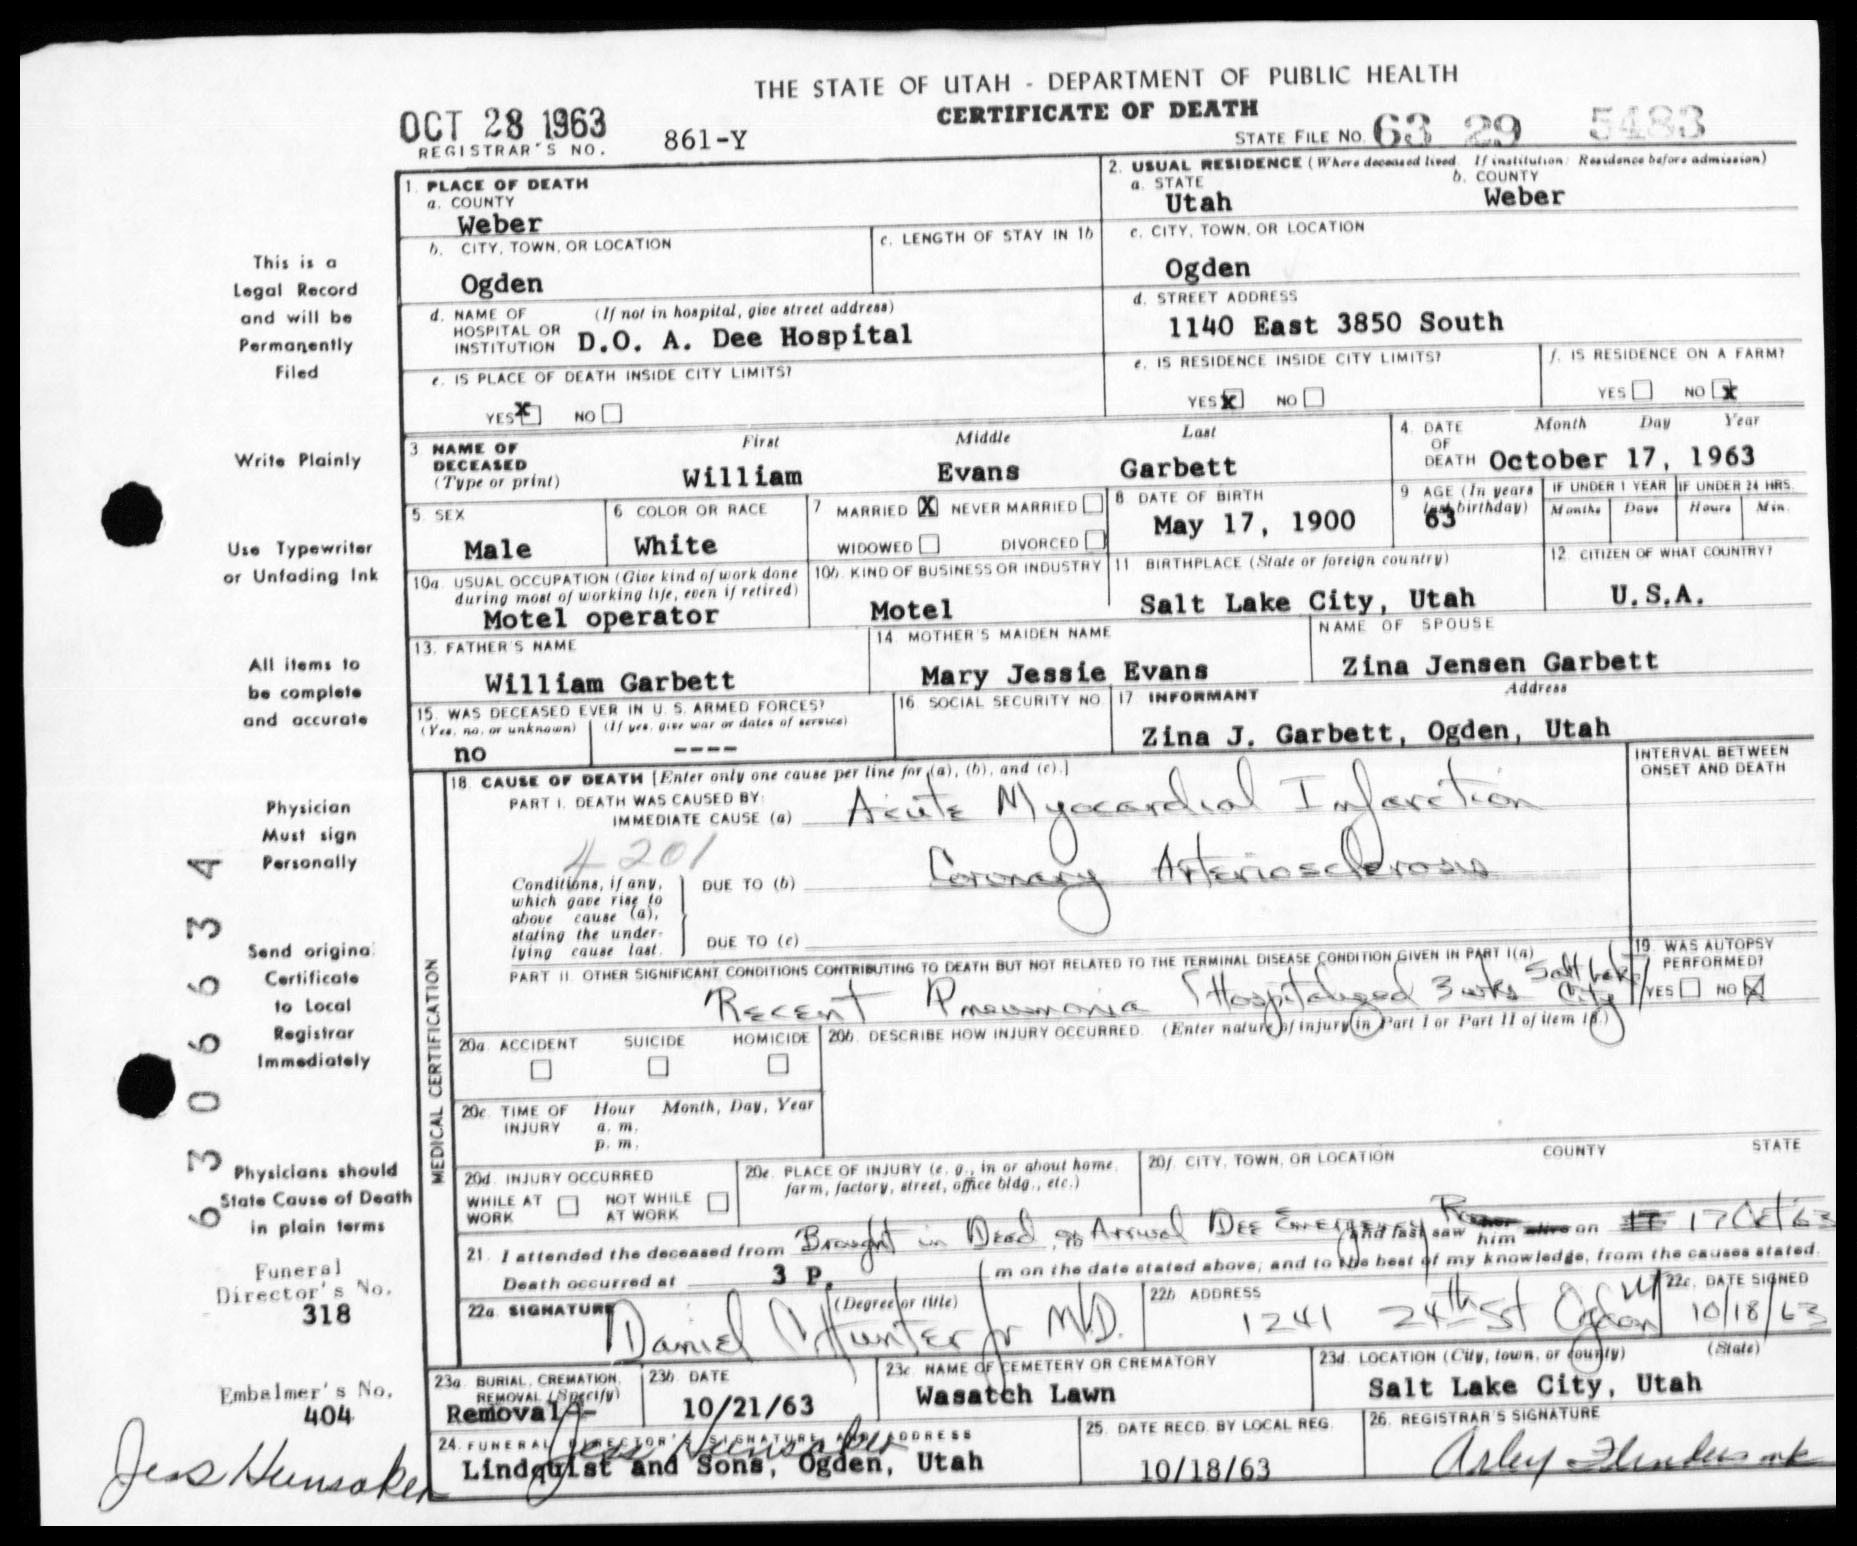 THE STATE OF UTAH - DEPARTMENT OF PUBLIC HEALTH
CERTIFICATE OF DEATH
OCT 28 1963
REGISTRAR'S NO. 861-Y
STATE FILE NO. 63 29 5483
1. PLACE OF DEATH
a. COUNTY
Weber
2. USUAL RESIDENCE (Where deceased lived. If institution: Residence before admission)
a. STATE
Utah
b. COUNTY
Weber
b. CITY, TOWN, OR LOCATION
Ogden
c. LENGTH OF STAY IN 1b
c. CITY, TOWN, OR LOCATION
Ogden
d. NAME OF HOSPITAL OR INSTITUTION (If not in hospital, give street address)
D.O. A. Dee Hospital
d. STREET ADDRESS
1140 East 3850 South
e. IS PLACE OF DEATH INSIDE CITY LIMITS?
YES X NO
e. IS RESIDENCE INSIDE CITY LIMITS?
YES X NO
f. IS RESIDENCE ON A FARM?
YES NO X
3 NAME OF DECEASED (Type or print)
First Middle Last
William Evans Garbett
4. DATE OF DEATH Month Day Year
October 17, 1963
5. SEX
Male
6 COLOR OR RACE
White
7 MARRIED X NEVER MARRIED
WIDOWED DIVORCED
8 DATE OF BIRTH
May 17, 1900
9 AGE (In years last birthday)
63
IF UNDER 1 YEAR
Months Days
IF UNDER 24 HRS.
Hours Min.
10a. USUAL OCCUPATION (Give kind of work done during most of working life, even if retired)
Motel operator
10b. KIND OF BUSINESS OR INDUSTRY
Motel
11 BIRTHPLACE (State or foreign country)
Salt Lake City, Utah
12. CITIZEN OF WHAT COUNTRY?
U.S.A.
13. FATHER'S NAME
William Garbett
14. MOTHER'S MAIDEN NAME
Mary Jessie Evans
NAME OF SPOUSE
Zina Jensen Garbett
15. WAS DECEASED EVER IN U. S. ARMED FORCES?
(Yes, no, or unknown) (If yes, give war or dates of service)
no ----
16 SOCIAL SECURITY NO.
17 INFORMANT Address
Zina J. Garbett, Ogden, Utah
MEDICAL CERTIFICATION
18. CAUSE OF DEATH [Enter only one cause per line for (a), (b), and (c).]
INTERVAL BETWEEN ONSET AND DEATH
PART I. DEATH WAS CAUSED BY:
IMMEDIATE CAUSE (a) Acute Myocardial Infarction
4201
Conditions, if any, which gave rise to above cause (a), stating the underlying cause last.
DUE TO (b) Coronary Arteriosclerosis
DUE TO (c)
PART II. OTHER SIGNIFICANT CONDITIONS CONTRIBUTING TO DEATH BUT NOT RELATED TO THE TERMINAL DISEASE CONDITION GIVEN IN PART I(a)
Recent Pneumonia (Hospitalized 3 wks Salt Lake City)
19. WAS AUTOPSY PERFORMED?
YES NO X
20a. ACCIDENT SUICIDE HOMICIDE
20b. DESCRIBE HOW INJURY OCCURRED. (Enter nature of injury in Part I or Part II of item 18.)
20c. TIME OF INJURY Hour Month, Day, Year
a. m.
p. m.
20d. INJURY OCCURRED
WHILE AT WORK NOT WHILE AT WORK
20e. PLACE OF INJURY (e. g., in or about home, farm, factory, street, office bldg., etc.)
20f. CITY, TOWN, OR LOCATION COUNTY STATE
21. I attended the deceased from Brought in Dead on Arrival Dee Emergency and last saw him alive on 17 Oct 63
Death occurred at 3 P. m on the date stated above; and to the best of my knowledge, from the causes stated.
22a. SIGNATURE (Degree or title)
Daniel C Hunter Jr M.D.
22b. ADDRESS
1241 24th St Ogden Ut
22c. DATE SIGNED
10/18/63
23a. BURIAL, CREMATION, REMOVAL (Specify)
Removal-
23b. DATE
10/21/63
23c. NAME OF CEMETERY OR CREMATORY
Wasatch Lawn
23d. LOCATION (City, town, or county) (State)
Salt Lake City, Utah
24. FUNERAL DIRECTOR'S SIGNATURE AND ADDRESS
Jess Hunsaker
Lindquist and Sons, Ogden, Utah
25. DATE RECD. BY LOCAL REG.
10/18/63
26. REGISTRAR'S SIGNATURE
This is a
Legal Record
and will be
Permanently
Filed
Write Plainly
Use Typewriter
or Unfading Ink
All items to
be complete
and accurate
Physician
Must sign
Personally
Send original
Certificate
to Local
Registrar
Immediately
Physicians should
State Cause of Death
in plain terms
63066334
Funeral
Director's No.
318
Embalmer's No.
404
Jess Hunsaker